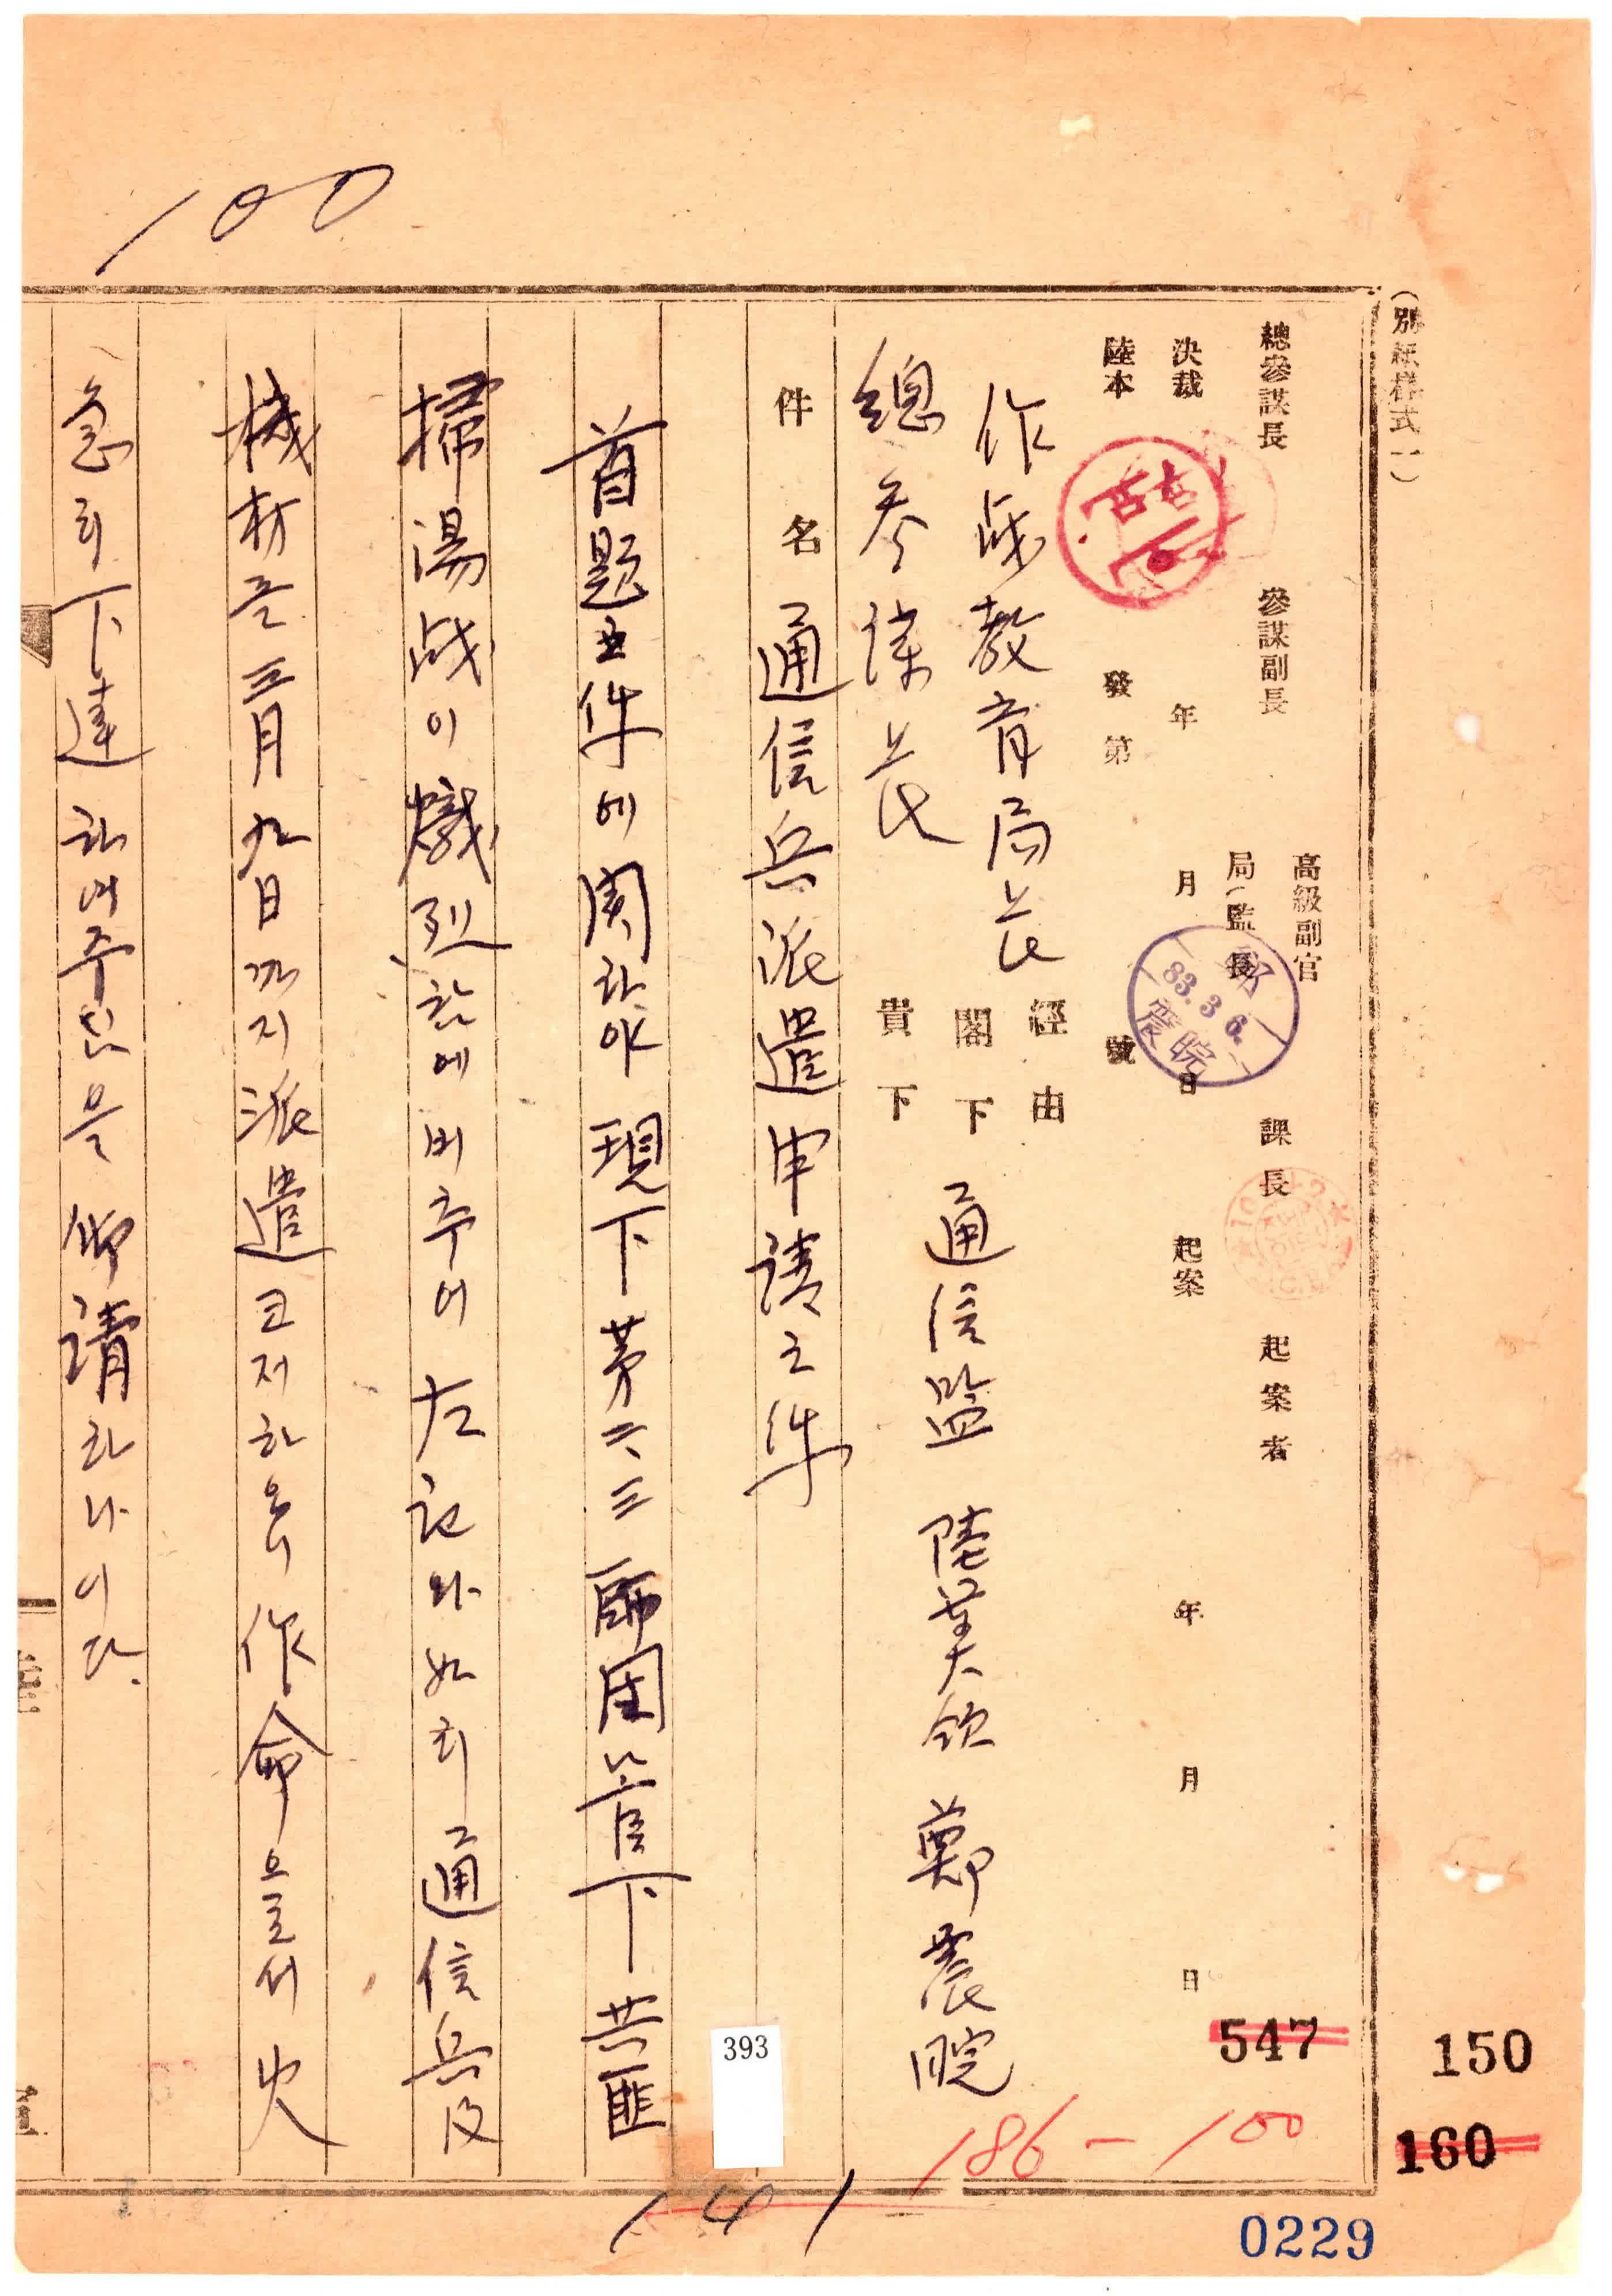 (別紙樣式一)
高級副官
總參謀長 參謀副長 局(監)長 課長 起案者
決裁 年 月 日 起案 年 月 日
陸本 發第 號
鄭
83.3.6.
震晥
作战教育局长 經由
總参謀长 閣下
貴下
通信監 陸軍大領 鄭震晥
件名 通信兵派遣申請之件
首題五件에関하야 現下 第六、三師団管下 共匪
掃湯战이熾烈함에비추어 左記와如히 通信兵及
機材を三月九日까지派遣코저하오니 作命으로서 火
急히下達하여주심을 仰請하나이다.
100
393
547
150
160
186-100
141
0229